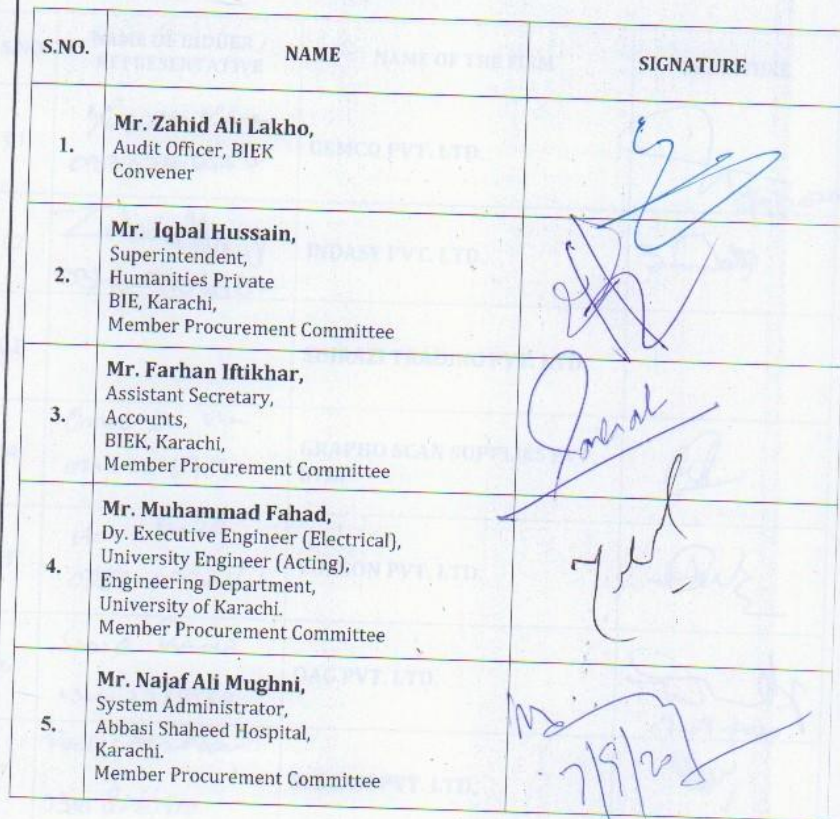 S.NO. NAME SIGNATURE
1. Mr. Zahid Ali Lakho,
Audit Officer, BIEK
Convener
2. Mr. Iqbal Hussain,
Superintendent,
Humanities Private
BIE, Karachi,
Member Procurement Committee
3. Mr. Farhan Iftikhar,
Assistant Secretary,
Accounts,
BIEK, Karachi,
Member Procurement Committee
4. Mr. Muhammad Fahad,
Dy. Executive Engineer (Electrical),
University Engineer (Acting),
Engineering Department,
University of Karachi.
Member Procurement Committee
5. Mr. Najaf Ali Mughni,
System Administrator,
Abbasi Shaheed Hospital,
Karachi.
Member Procurement Committee
7/8/20